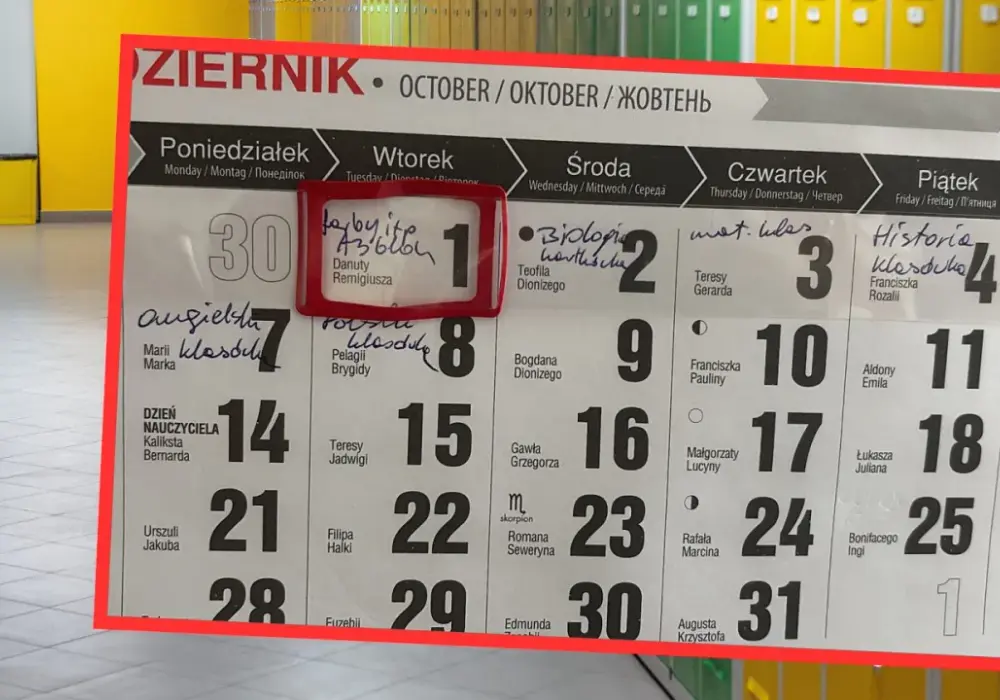 DZIERNIK • OCTOBER / OKTOBER / ЖОВТЕНЬ
Poniedziałek
Monday / Montag / Понеділок
Wtorek
Tuesday / Dienstag / Вівторок
Środa
Wednesday / Mittwoch / Середа
Czwartek
Thursday / Donnerstag / Четвер
Piątek
Friday / Freitag / П'ятниця
30
farby
1
Danuty
Remigiusza
Biologia
kartkówka
2
Teofila
Dionizego
mat. klas
3
Teresy
Gerarda
Historia
klasówka
4
Franciszka
Rozalii
angielski
klasówka
7
Marii
Marka
Polski
klasówka
8
Pelagii
Brygidy
9
Bogdana
Dionizego
10
Franciszka
Pauliny
11
Aldony
Emila
DZIEŃ
NAUCZYCIELA
Kaliksta
Bernarda
14
15
Teresy
Jadwigi
16
Gawła
Grzegorza
17
Małgorzaty
Lucyny
18
Łukasza
Juliana
21
Urszuli
Jakuba
22
Filipa
Halki
skorpion
23
Romana
Seweryna
24
Rafała
Marcina
25
Bonifacego
Ingi
28
29
Euzebii
30
Edmunda
31
Augusta
Krzysztofa
1